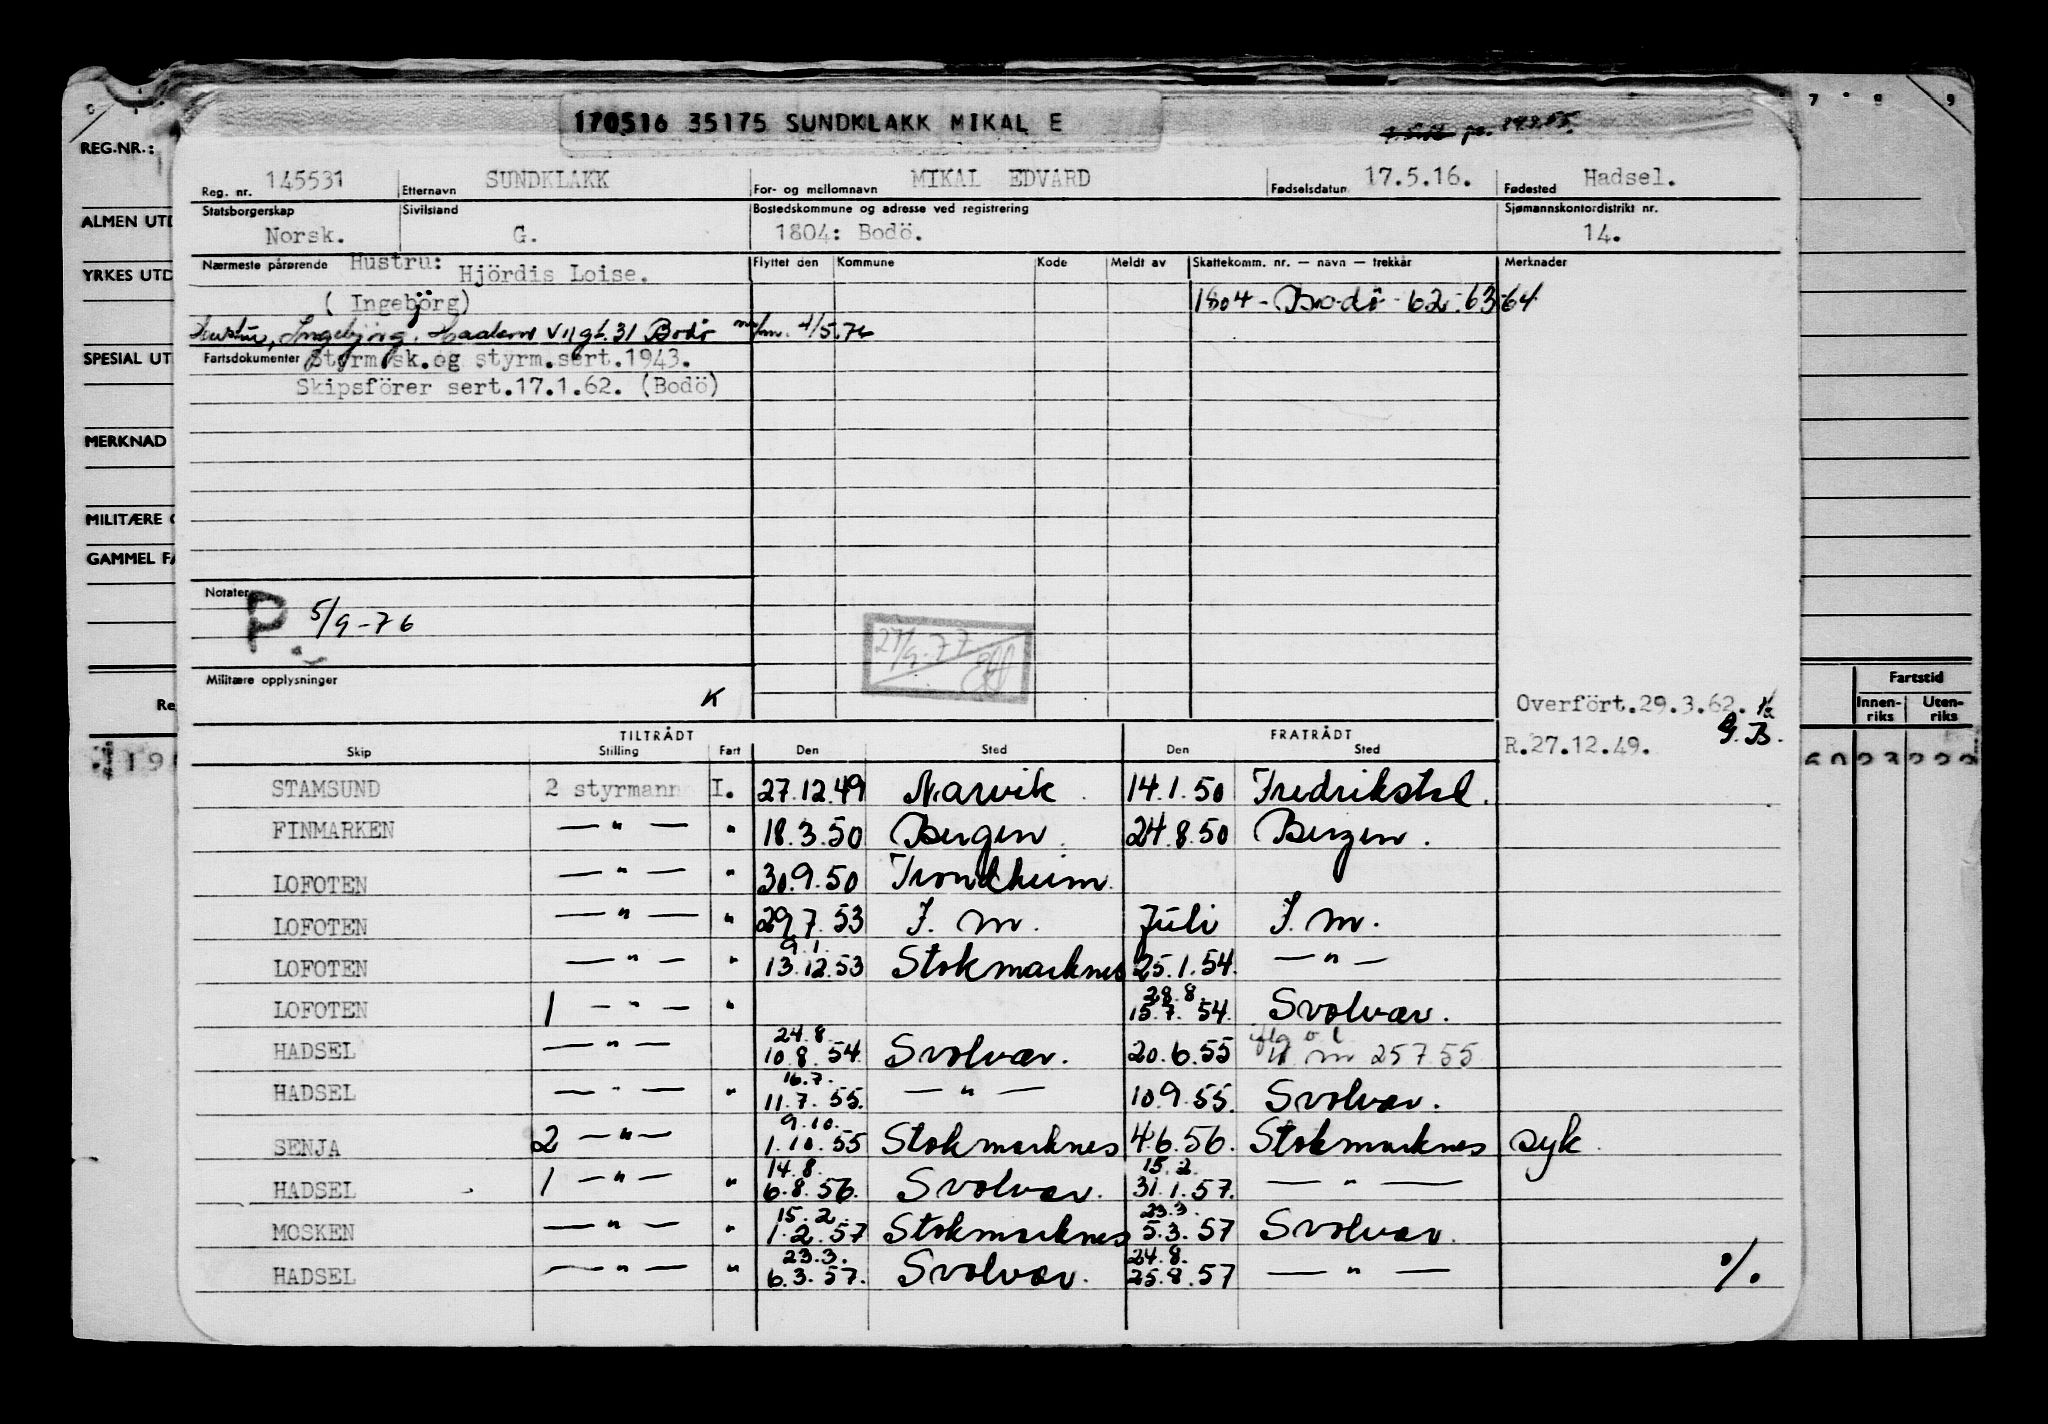 170516 35175 SUNDKLAKK MIKAL E
7 8 9
REG.NR.:
Reg. nr. 145531 Etternavn SUNDKLAKK For- og mellomnavn MIKAL EDVARD Fødselsdatum 17.5.16. Fødested Hadsel.
Statsborgerskap Sivilstand Bostedskommune og adresse ved registrering Sjømannskontordistrikt nr.
ALMEN UTD
Norsk. G. 1804: Bodö. 14.
Nærmeste pårørende Hustru: Flyttet den Kommune Kode Meldt av Skattekomm. nr. — navn — trekkår Merknader
YRKES UTD
Hjördis Loise.
( Ingebjörg) 1804 - Bodö - 62-63-64
Ingebjörg, VII gt. 31 Bodö 4/5.76
SPESIAL UT
Fartsdokumenter Styrm.sk.og styrm.sert.1943.
Skipsförer sert.17.1.62. (Bodö)
MERKNAD
MILITÆRE O
GAMMEL FA
Notater
P 5/9-76
27/9-77
Militære opplysninger
K
Overfört.29.3.62.
G.B.
R.27.12.49.
Fartstid
Innen-riks Uten-riks
TILTRÅDT FRATRÅDT
Skip Stilling Fart Den Sted Den Sted
STAMSUND 2 styrmann I. 27.12.49 Narvik. 14.1.50 Fredrikstad.
FINMARKEN — " — " 18.3.50 Bergen. 24.8.50 Bergen.
LOFOTEN — " — " 30.9.50 Trondheim.
LOFOTEN — " — " 29.7.53 I. m. Juli I. m.
9.1.
LOFOTEN — " — " 13.12.53 Stokmarknes 25.1.54. — " —
28.8.
LOFOTEN 1 — " — " 15.7.54. Svolvær.
24.8.
HADSEL — " — 10.8.54. Svolvær. 20.6.55 m 25 7.55
16.7.
HADSEL — " — " 11.7.55. — " — 10.9.55. Svolvær.
9.10.
SENJA 2 — " — 1.10.55 Stokmarknes 4.6.56. Stokmarknes syk.
14.8. 15.2.
HADSEL 1 — " — " 6.8.56. Svolvær. 31.1.57. — " —
15.2. 23.3.
MOSKEN — " — " 1.2.57 Stokmarknes 5.3.57 Svolvær.
23.3. 24.8.
HADSEL — " — " 6.3.57. Svolvær. 25.8.57 — " — %